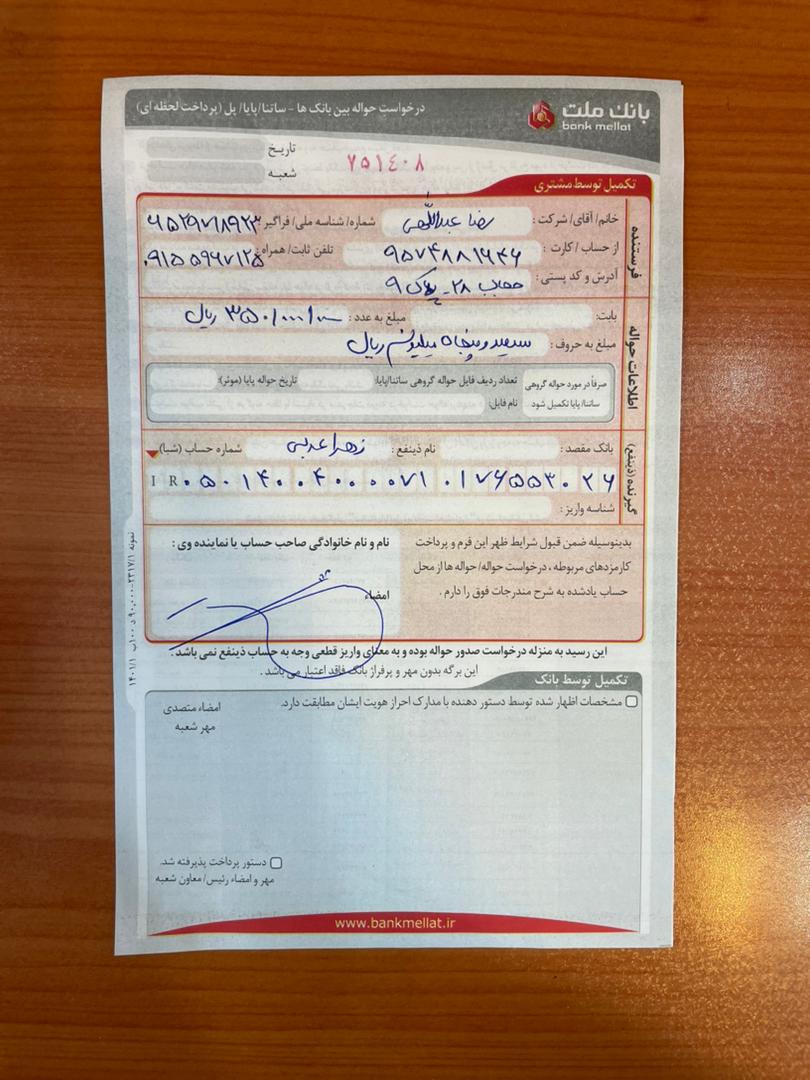 بانک ملت
bank mellat
درخواست حواله بین بانک ها - ساتنا/ پایا/ پل (پرداخت لحظه ای)
تاریخ
شعبه
۷۵۱۴۰۸
تکمیل توسط مشتری
فرستنده
خانم/ آقای/ شرکت: رضا عبداللهی شماره/ شناسه ملی/ فراگیر:
از حساب / کارت: تلفن ثابت/ همراه: ۰۹۱۵۵۹۶۷۱۲۵
آدرس و کد پستی: ۲۸ - پلاک ۹
اطلاعات حواله
بابت: مبلغ به عدد: ۳۵۰/۰۰۰/۰۰۰ ریال
مبلغ به حروف: سیصد و پنجاه میلیون ریال
صرفاً در مورد حواله گروهی ساتنا/ پایا تکمیل شود
تعداد ردیف فایل حواله گروهی ساتنا/پایا: تاریخ حواله پایا (موثر):
نام فایل:
گیرنده (ذینفع)
بانک مقصد: نام ذینفع: زهرا شماره حساب (شبا)
IR ۰۵۰۱۴۰۰۴۰۰۰۰۷۱۰۱۷۶۵۵۳۰۲۶
شناسه واریز:
بدینوسیله ضمن قبول شرایط ظهر این فرم و پرداخت
کارمزدهای مربوطه، درخواست حواله/ حواله ها از محل
حساب یادشده به شرح مندرجات فوق را دارم.
نام و نام خانوادگی صاحب حساب یا نماینده وی:
امضاء
این رسید به منزله درخواست صدور حواله بوده و به معنای واریز قطعی وجه به حساب ذینفع نمی باشد.
این برگه بدون مهر و پرفراژ بانک فاقد اعتبار می باشد.
تکمیل توسط بانک
مشخصات اظهار شده توسط دستور دهنده با مدارک احراز هویت ایشان مطابقت دارد.
امضاء متصدی
مهر شعبه
دستور پرداخت پذیرفته شد.
مهر و امضاء رئیس/ معاون شعبه
www.bankmellat.ir